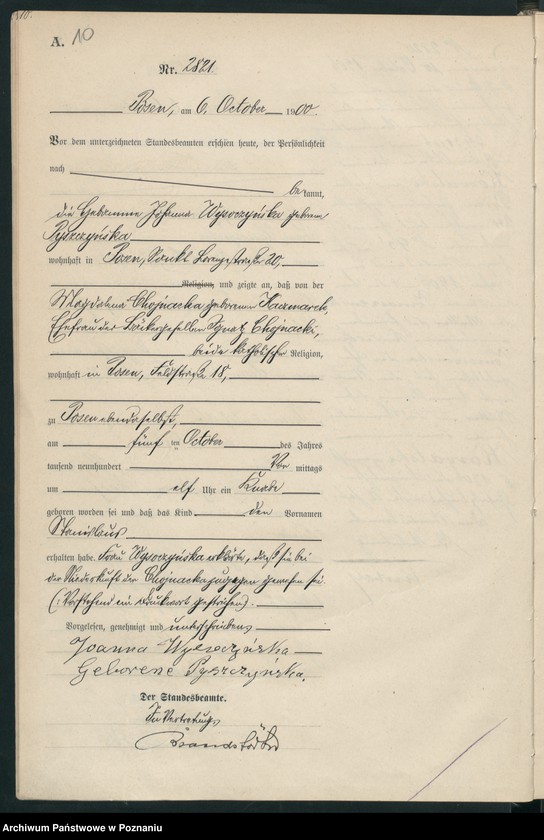 A. 10
Nr. 2821.
Posen, am 6. October 1900.
Vor dem unterzeichneten Standesbeamten erschien heute, der Persönlichkeit
nach
be kannt,
die Hebamme Johanna Wysoczyńska geborene
Pyszczyńska
wohnhaft in Posen, Sankt Lorenzstraße 20,
Religion, und zeigte an, daß von der
Magdalena Chojnacka geborenen Kaczmarek,
Ehefrau des Bäckergesellen Ignatz Chojnacki,
beide katholischer Religion,
wohnhaft in Posen, Feldstraße 18,
zu Posen ebendaselbst,
am fünf ten October des Jahres
tausend neunhundert Vor mittags
um elf Uhr ein Knabe
geboren worden sei und daß das Kind den Vornamen
Stanislaus
erhalten habe. Frau Wysoczyńska erklärte, daß sie bei
der Niederkunft der Chojnacka zugegen gewesen sei
(: Vorstehend ein Druckwort gestrichen).
Vorgelesen, genehmigt und unterschrieben
Joanna Wysoczyńska
Geborene Pyszczyńska.
Der Standesbeamte.
In Vertretung
Archiwum Państwowe w Poznaniu